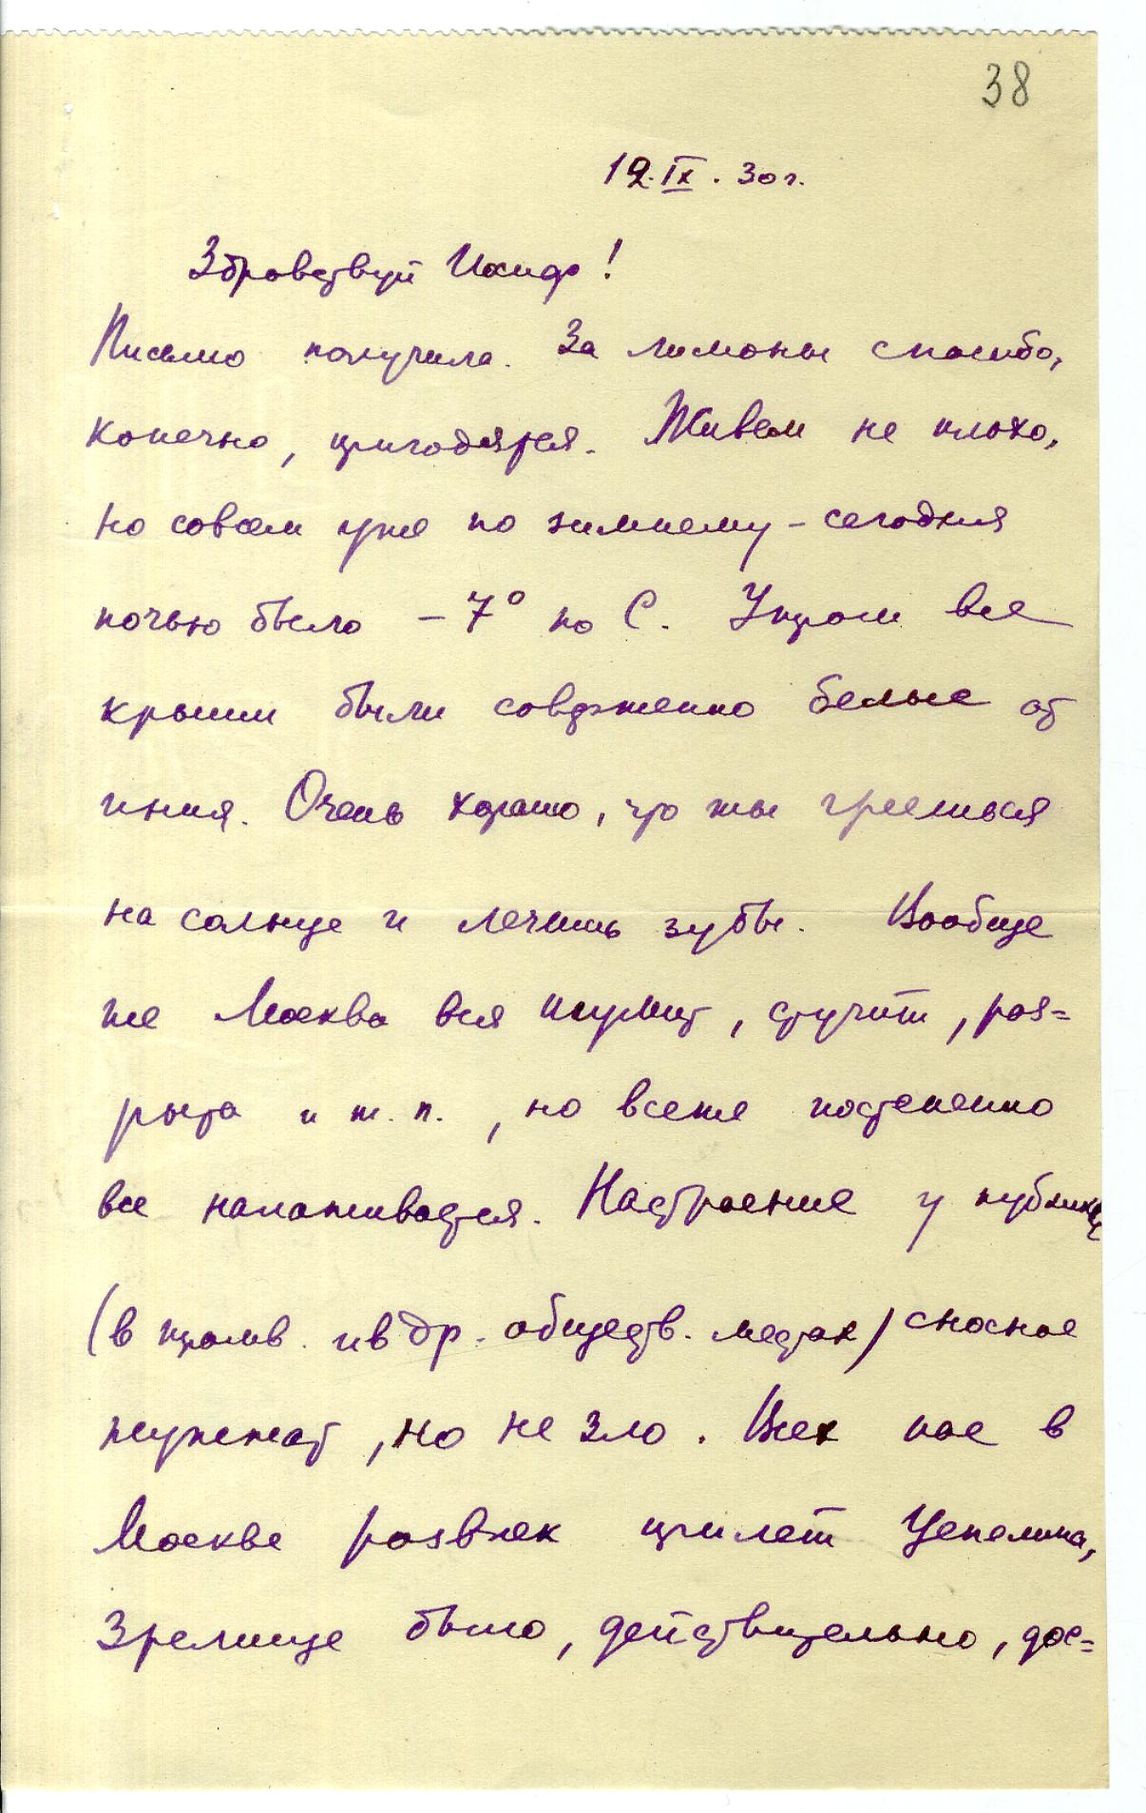 38
12.IX.30г.
Здравствуй Иосиф!
Письмо получила. За лимоны спасибо,
конечно, пригодятся. Живем не плохо,
но совсем уже по зимнему - сегодня
ночью было - 7° по С. Утром все
крыши были совершенно белые от
инея. Очень хорошо, что ты греешься
на солнце и лечишь зубы. Вообще
же Москва вся шумит, стучит, раз=
рыта и т.п., но всеже постепенно
все налаживается. Настроение у публики
(в трамв. и в др. обществ. местах) сносное
жужжат, но не зло. Всех нас в
Москве развлек прилет Цепелина,
зрелище было, действительно, дос=